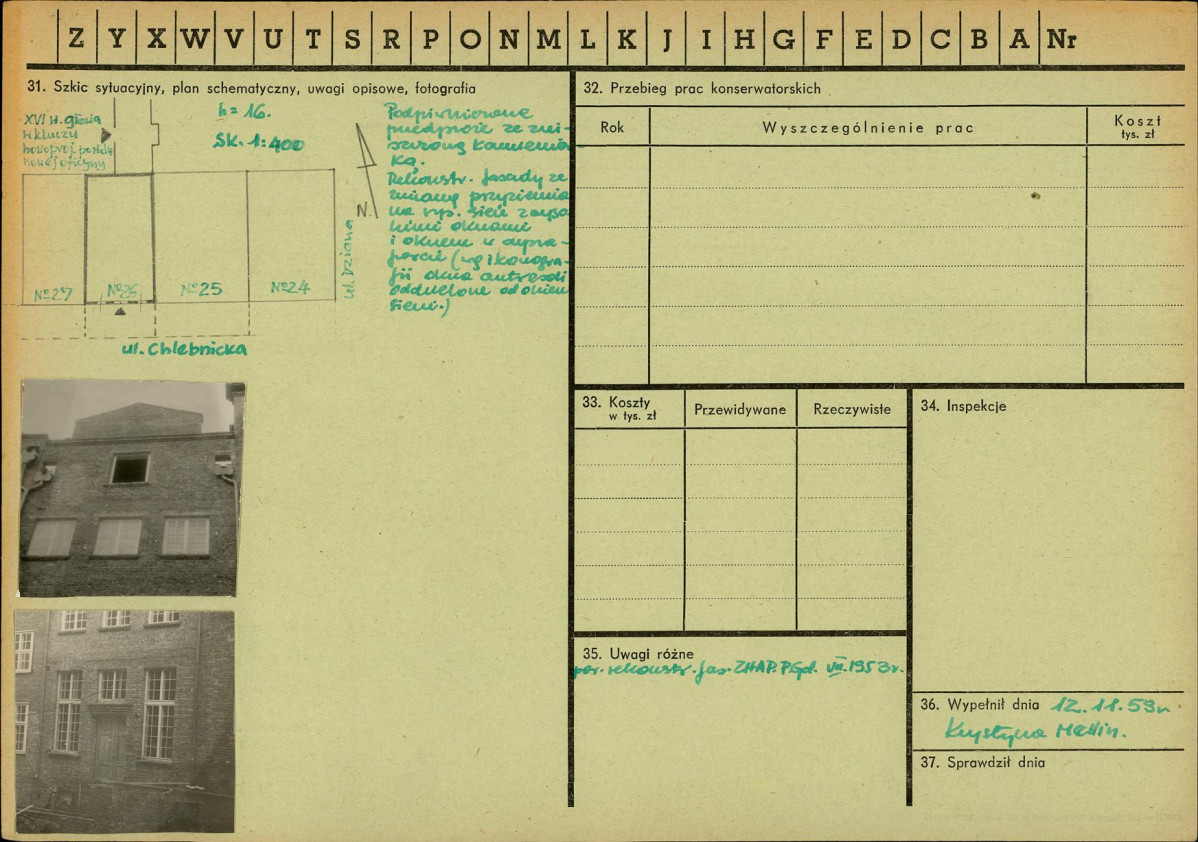 Z Y X W V U T S R P O N M L K J I H G F E D C B A Nr
31. Szkic sytuacyjny, plan schematyczny, uwagi opisowe, fotografia
XVI w. głowa
w kluczu
nowoproj. portalu
h = 16.
SK. 1:400
N.
Podpiwniczone
przedproże ze zni-
szczoną kamienia-
ką.
Rekonstr. fasady ze
zmianą przyziemia
na wys. sień z wyso-
kimi oknami
i oknem w supra-
porcie (wg ikonogra-
fii okna antresoli
oddzielone od okien
sieni.)
No 27
No 26
No 25
No 24
ul. Dziana
ul. Chlebnicka
32. Przebieg prac konserwatorskich
Rok
Wyszczególnienie prac
Koszt
tys. zł
33. Koszty
w tys. zł
Przewidywane
Rzeczywiste
34. Inspekcje
35. Uwagi różne
rekonstr. fas. ZHAP. P.Gd. VII. 1953 r.
36. Wypełnił dnia 12. 11. 59 r.
Krystyna Mellin.
37. Sprawdził dnia